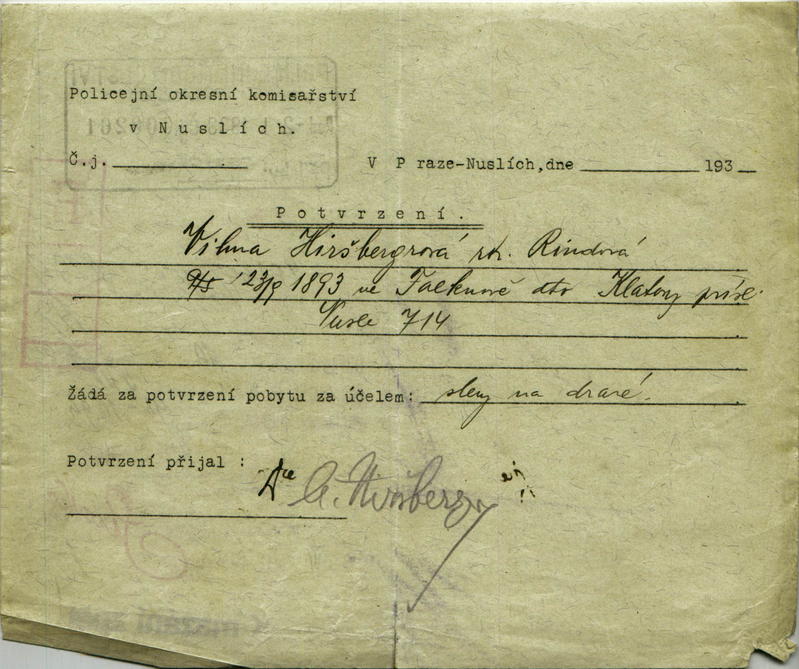 Policejní okresní komisařství
v Nuslích.
Č.j. V Praze-Nuslích,dne 193
Potvrzení.
Vilma Hiršbergrová roz. Rindová
23/9 1893 ve Falknově dto Klatovy přísl.
Nusle 714
Žádá za potvrzení pobytu za účelem: slevy na dráze.
Potvrzení přijal :